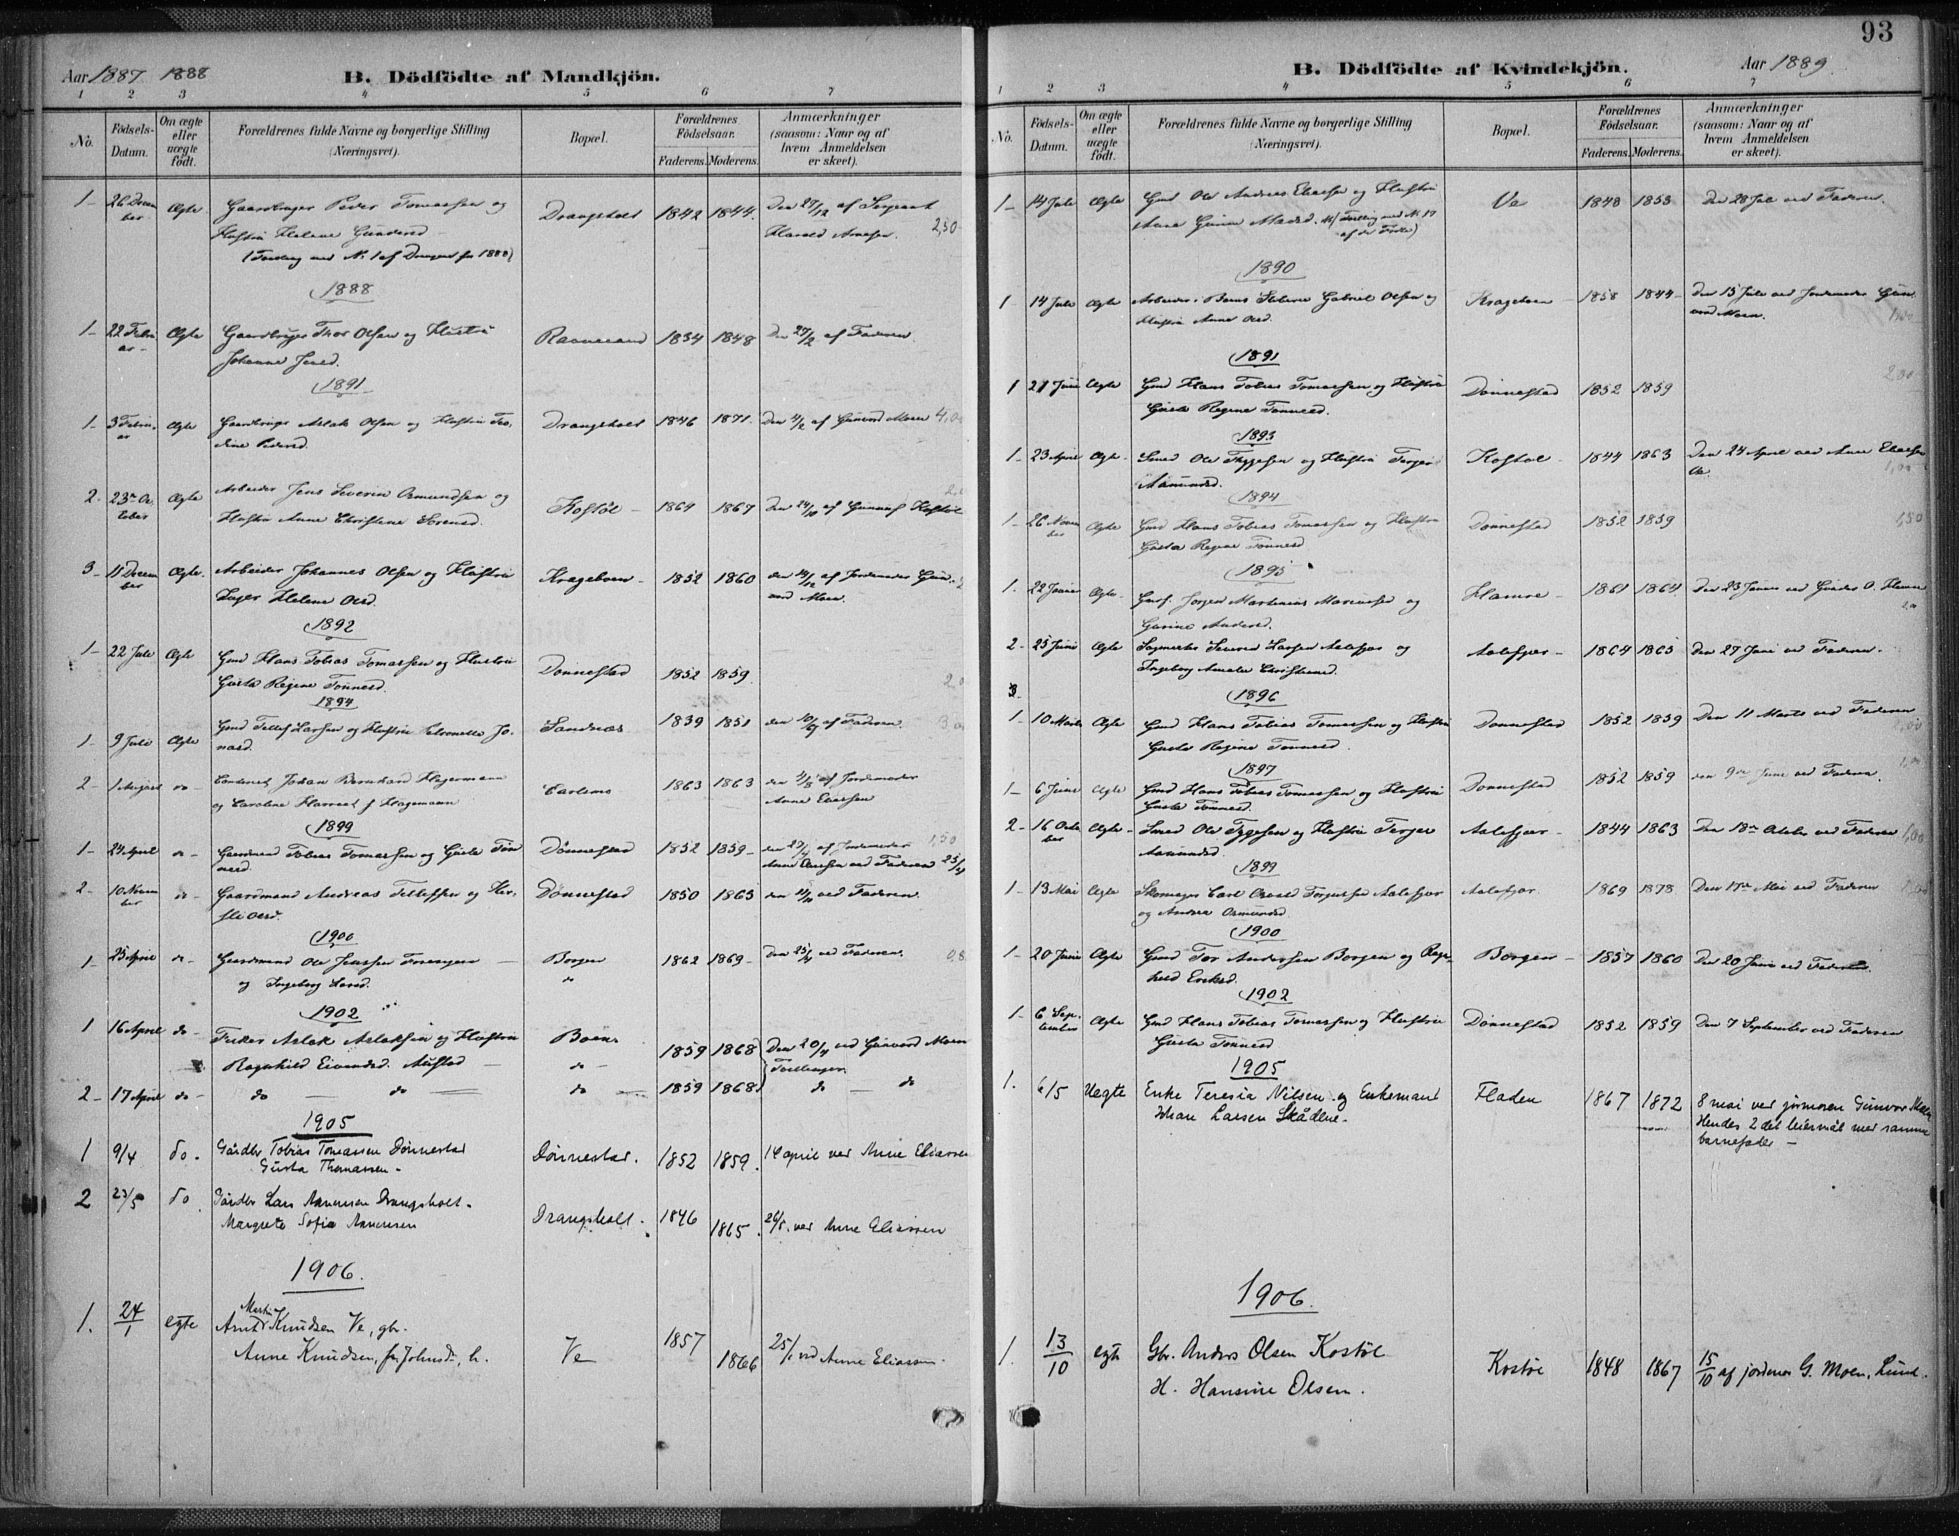 93
Aar 1887 1888
B. Dödfödte af Mandkjön.
1 2 3 4 5 6 7
No.
Fødsels-Datum.
Om ægte eller uægte født.
Forældrenes fulde Navne og borgerlige Stilling (Næringsvei).
Bopæl.
Forældrenes Fødselsaar.
Faderens. Moderens.
Anmærkninger (saasom: Naar og af hvem Anmeldelsen er skeet).
1- 26 Decem Ægte Gaardbruger Peder Tomassen og Drangsholt 1842 1844 Den 27/12 af Sergeant
ber Hustru Helene Gundersd Harald Arnesen. 2,50
(Tvilling med No. 1 af Drenger for 1888)
1888
1- 22 Febru Ægte Gaardbruger Thor Olsen og Hustru Ravnaas 1834 1848 Den 27/2 af Faderen.
ar- Johanne Jensd.
1891
1- 3 Febru Ægte Gaardbruger Aslak Olsen og Hustru Drangsholt 1846 1871 Den 4/2 af Gunvord Moen 4,00
ar Pedersd.
2- 23 Oc Ægte Arbeider Jens Severin Osmundsen og Kostøl - 1869 1867 Den 24/10 af Kostøl
tober Hustru Anne Christine Sørensd.
3- 11 Decem Ægte Arbeider Johannes Olsen og Hustru Krageboen - 1852 1860 den 12/12 af Jordemoder Gun-
ber Inger Helene Olsd. vord Moen.
1892
1- 22 Juli Ægte Gmd Hans Tobias Tomassen og Hustru Dønnestad 1852 1859
Gusta Regine Tønnesd.
1894
1- 9 Juli Ægte Gmd Tellef Larsen og Hustru Petronelle Jo- Sandnæs 1839 1851 den 10/7 af Faderen.
nasd.
2- 1 August do- Johan Bernhard Hagemann Carlens 1863 1863 den af Jordemoder
og Caroline Harriet f. Hagemann Anne Eliassen
1899
1- 24 April do- Gaardmand Tobias Tomassen og Gusta Tøn Dønnestad 1852 1859- den af Jordemoder 1,50
nesd. Anne Eliassen ved Faderen
2- 10 Novem do- Gaardmand Andreas Tellefsen og Dønnestad 1850 1863 den ved Faderen.
ber Olsd.
1900
1- 25 April do- Gaardmand Ole Jensen - Borgen 1862 1869- Den 25/4 ved Faderen.
og Ingeborg Larsd. do
1902
1 16 April do- Aslak Aslaksen og Hustru Boen 1859 1868 Den 20/4 ved Gunvord Moen
Ragnhild Eivindsd. Austad - do - Tvillinger.
2- 17 April do- do — do — do - 1859 1868 do — do
1905
1 9/4 do. Gårdbr Tobias Tomassen Dønnestad Dønnestad. 1852 1859. 14 april ved Anne Eliassen
Gusta Thomassen-
2 23/5 do Gårdbr Lars Aanensen Drangsholt. Drangsholt. 1846 1865. 26/5. ved Anne Eliassen
Margrete Sofie Aanensen
1906.
1. 24/1 egte Martin
Arnt Knudsen Ve, gbr. Ve 1857 1866 25/1 ved Anne Eliassen.
Anne Knudsen, f. Johnsd., h.
B. Dödfödte af Kvindekjön.
Aar 1889
1 2 3 4 5 6 7
No.
Fødsels-Datum.
Om ægte eller uægte født.
Forældrenes fulde Navne og borgerlige Stilling (Næringsvei).
Bopæl.
Forældrenes Fødselsaar.
Faderens. Moderens.
Anmærkninger (saasom: Naar og af hvem Anmeldelsen er skeet).
1- 14 Juli Ægte Gmd Ole Andreas Eliassen og Hustru Ve 1848 1853 Den 28 Juli ved Faderen.
Anne Gurine Madsd. (Tvilling med No. 17
af de Fødte)
1890
1- 14 Juli Ægte Arbeider Gabriel Olsen og Krageboen - 1858 1844- Den 15 Juli ved Jordemoder Gun
Hustru Anne Olsd. vord Moen. 1,00
1891
1 21 Juni Ægte Gmd Hans Tobias Tomassen og Hustru Dønnestad 1852 1859 2,00
Gusta Regine Tønnesd.
1893
1- 23 April Ægte- Smed Ole Tryggesen og Hustru Terger Kostøl - 1844 1863 Den 24 April ved Anne Eliassen
Aamundsd. 1,00
1894
1- 26 Novem Ægte Gmd Hans Tobias Tomassen og Hustru Dønnestad 1852 1859 1,50
ber Gusta Regine Tønnesd
1895
1. 22 Januar Ægte- Jørgen Martinius og Hamre - 1861 1864 Den 23 Januar ved
Gurine Andersd.
2- 25 Juni Ægte Larsen Aalefjær og Aalefjær - 1864 1863 Den 27 Juni ved Faderen.
Ingeborg Amalie Christensd.
3-
1896
1- 10 Marts Ægte Gmd Hans Tobias Tomassen og Hustru Dønnestad 1852 1859 Den 11 Marts ved Faderen
Gusta Regine Tønnesd.
1897
1- 6 Juni Ægte Gmd Hans Tobias Tomassen og Hustru Dønnestad 1852 1859 den 9de Juni ved Faderen. 1,00
Gusta Tønnesd.
2- 16 Octo Ægte- Smed Ole Tygesen og Hustru Terger Aalefjær - 1844 1863 Den 18de Octobr ved Faderen 1,00
ber Aamundsd.
1899
1- 13 Mai Ægte Skomager Carl Torgersen Aalefjær Aalefjær 1869 1878 Den 17de Mai ved Faderen
og Andrea Osmundsd.
1900
1- 20 Juni Ægte Gmd Tor Andersen Borgen og Ragn- Borgen - 1857 1860 Den 20 Juni ved Faderen
hild Eriksd.
1902
1- 6 Sep- Ægte Gmd Hans Tobias Tomassen og Hustru Dønnestad 1852 1859 Den 7 September ved Faderen
tember Gusta Tønnesd.
1905
1. 6/5 Uegte Enke Teresia Nilsen og Enkemand Fladen 1867 1872 8 mai ved jormoren Gunvor Moen
Johan Larsen Hendes 2det leiermål med samme
barnefader -
1906.
1. 13/10 egte Gbr. Anders Olsen Kostøl Kostøl 1848 1867 15/10 af jordemor G. Moen, Lund.
H. Hansine Olsen.